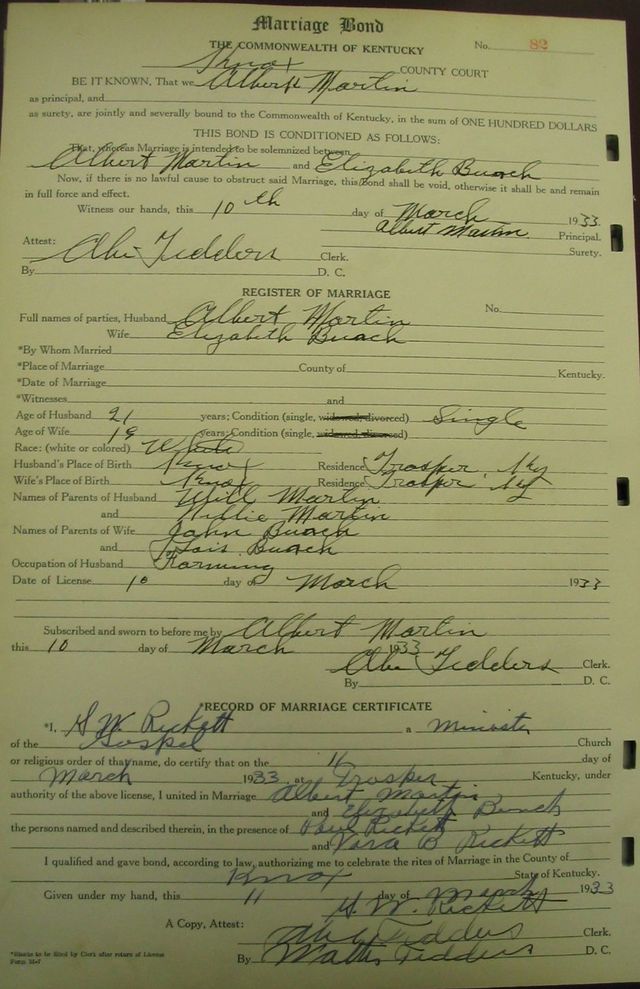 Marriage Bond
THE COMMONWEALTH OF KENTUCKY No. 82
Knox COUNTY COURT
BE IT KNOWN, That we Albert Martin
as principal, and
as surety, are jointly and severally bound to the Commonwealth of Kentucky, in the sum of ONE HUNDRED DOLLARS
THIS BOND IS CONDITIONED AS FOLLOWS:
That, whereas Marriage is intended to be solemnized between
Albert Martin and Elizabeth Bunch
Now, if there is no lawful cause to obstruct said Marriage, this Bond shall be void, otherwise it shall be and remain
in full force and effect.
Witness our hands, this 10th day of March 1933.
Albert Martin Principal.
Surety.
Attest:
Abe Tedders Clerk.
By D. C.
REGISTER OF MARRIAGE
Full names of parties, Husband Albert Martin No.
Wife Elizabeth Bunch
*By Whom Married
*Place of Marriage County of Kentucky.
*Date of Marriage
*Witnesses and
Age of Husband 21 years; Condition (single, widowed, divorced) Single
Age of Wife 19 years; Condition (single, widowed, divorced)
Race: (white or colored) White
Husband's Place of Birth Knox Residence Trosper, Ky
Wife's Place of Birth Knox Residence Trosper, Ky
Names of Parents of Husband Will Martin
and Millie Martin
Names of Parents of Wife John Bunch
and Lois Bunch
Occupation of Husband Farming
Date of License 10 day of March 1933
Subscribed and sworn to before me by Albert Martin
this 10 day of March 1933
Abe Tedders Clerk.
By D. C.
*RECORD OF MARRIAGE CERTIFICATE
*I, G. W. Rickett a minister
of the Gospel Church
or religious order of that name, do certify that on the 11 day of
March 1933, at Trosper Kentucky, under
authority of the above license, I united in Marriage Albert Martin
and Elizabeth Bunch
the persons named and described therein, in the presence of Paul Rickett
and Vora B Rickett
I qualified and gave bond, according to law, authorizing me to celebrate the rites of Marriage in the County of
Knox State of Kentucky.
Given under my hand, this 11 day of March 1933
G. W. Rickett
A Copy, Attest: Abe Tedders Clerk.
By Tedders D. C.
*Blanks to be filed by Clerk after return of License